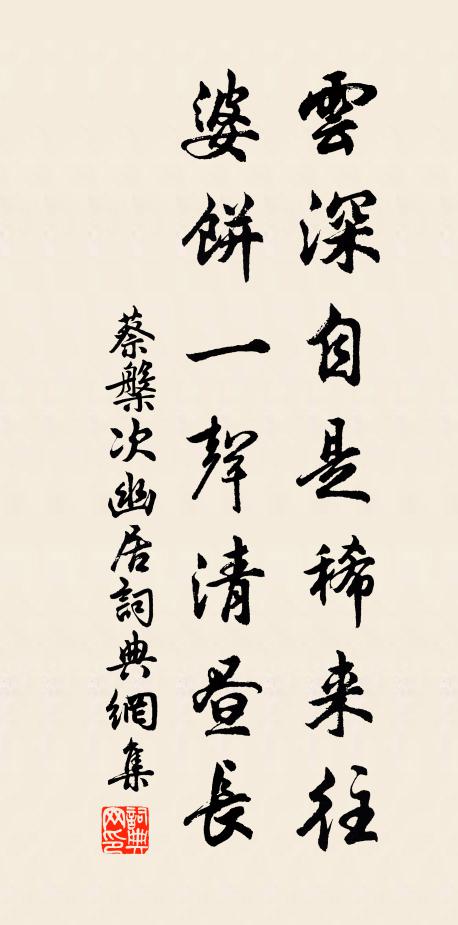 雲深自是稀来往
婆餅一聲清晝長
蔡槃次幽居詞典網集
詞典网印